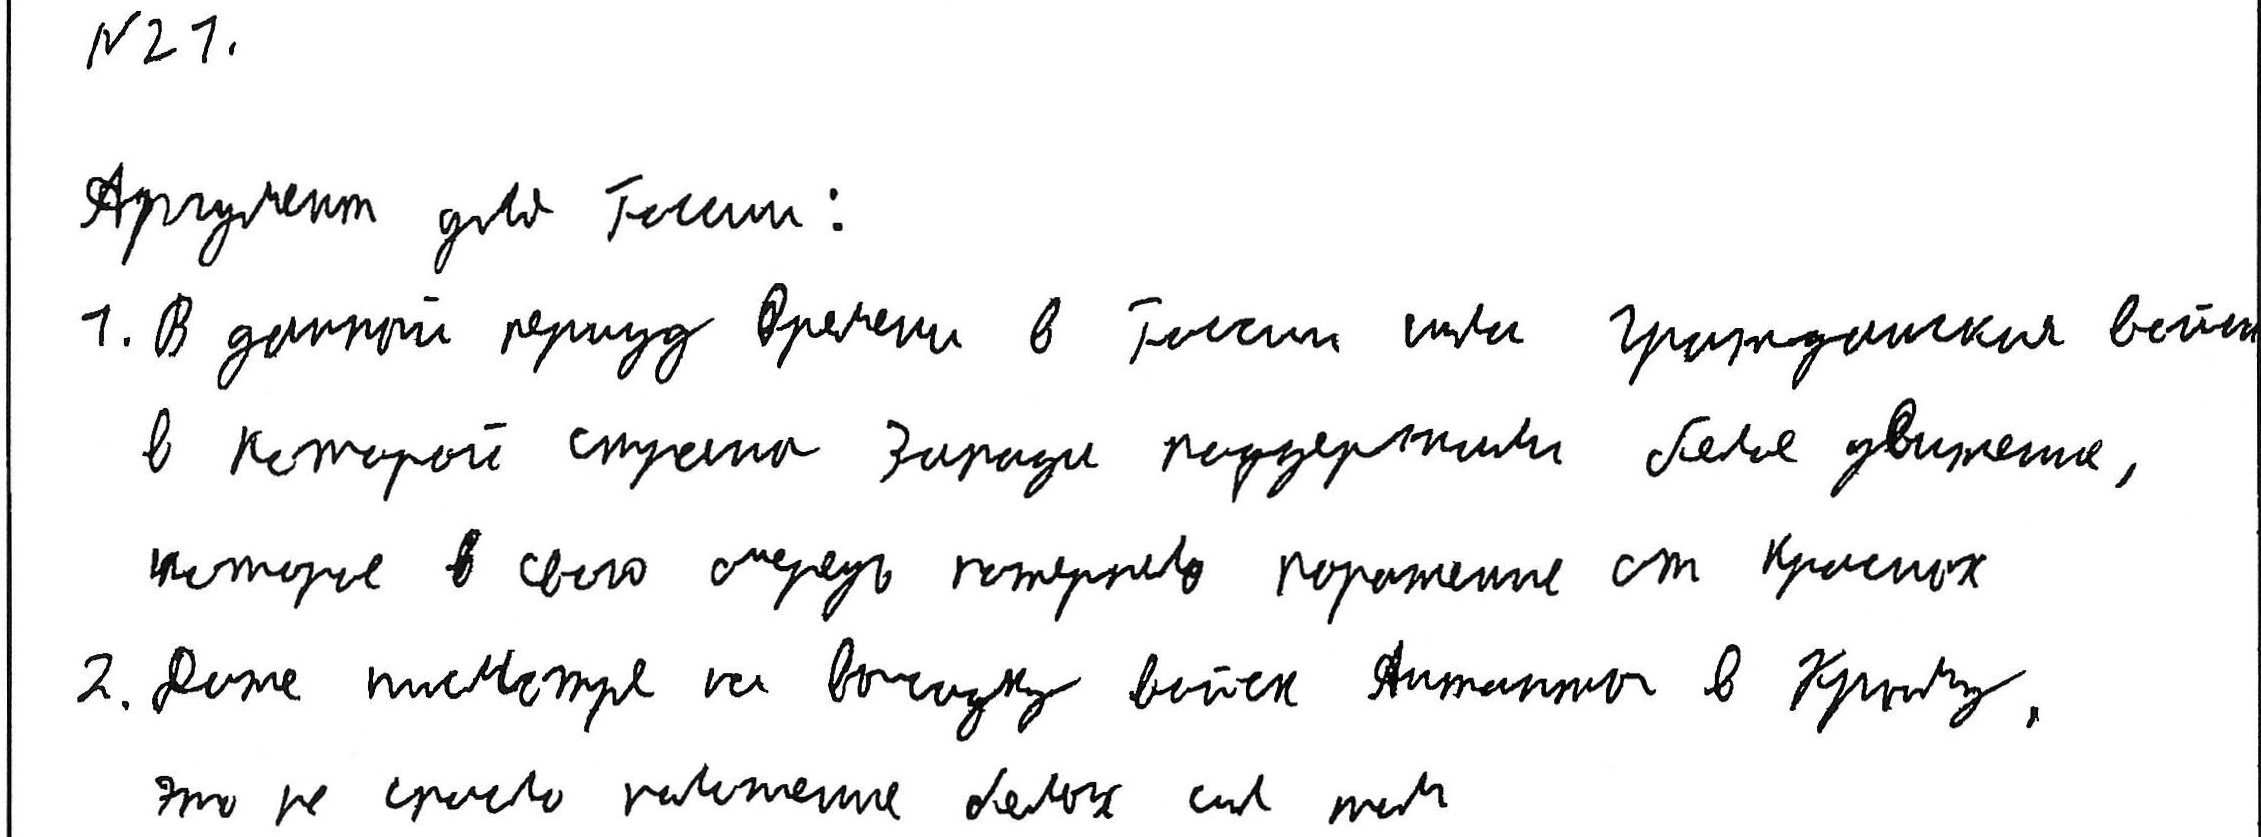 №21.
Аргумент для России:
1. В данной период времени в России шла гражданская война
в которой страны Запада поддержали белое движение,
которое в свою очередь потерпело поражение от Красных
2. Даже несмотря на высадку войск Антанты в Крыму,
это не спасло положение белых сил там